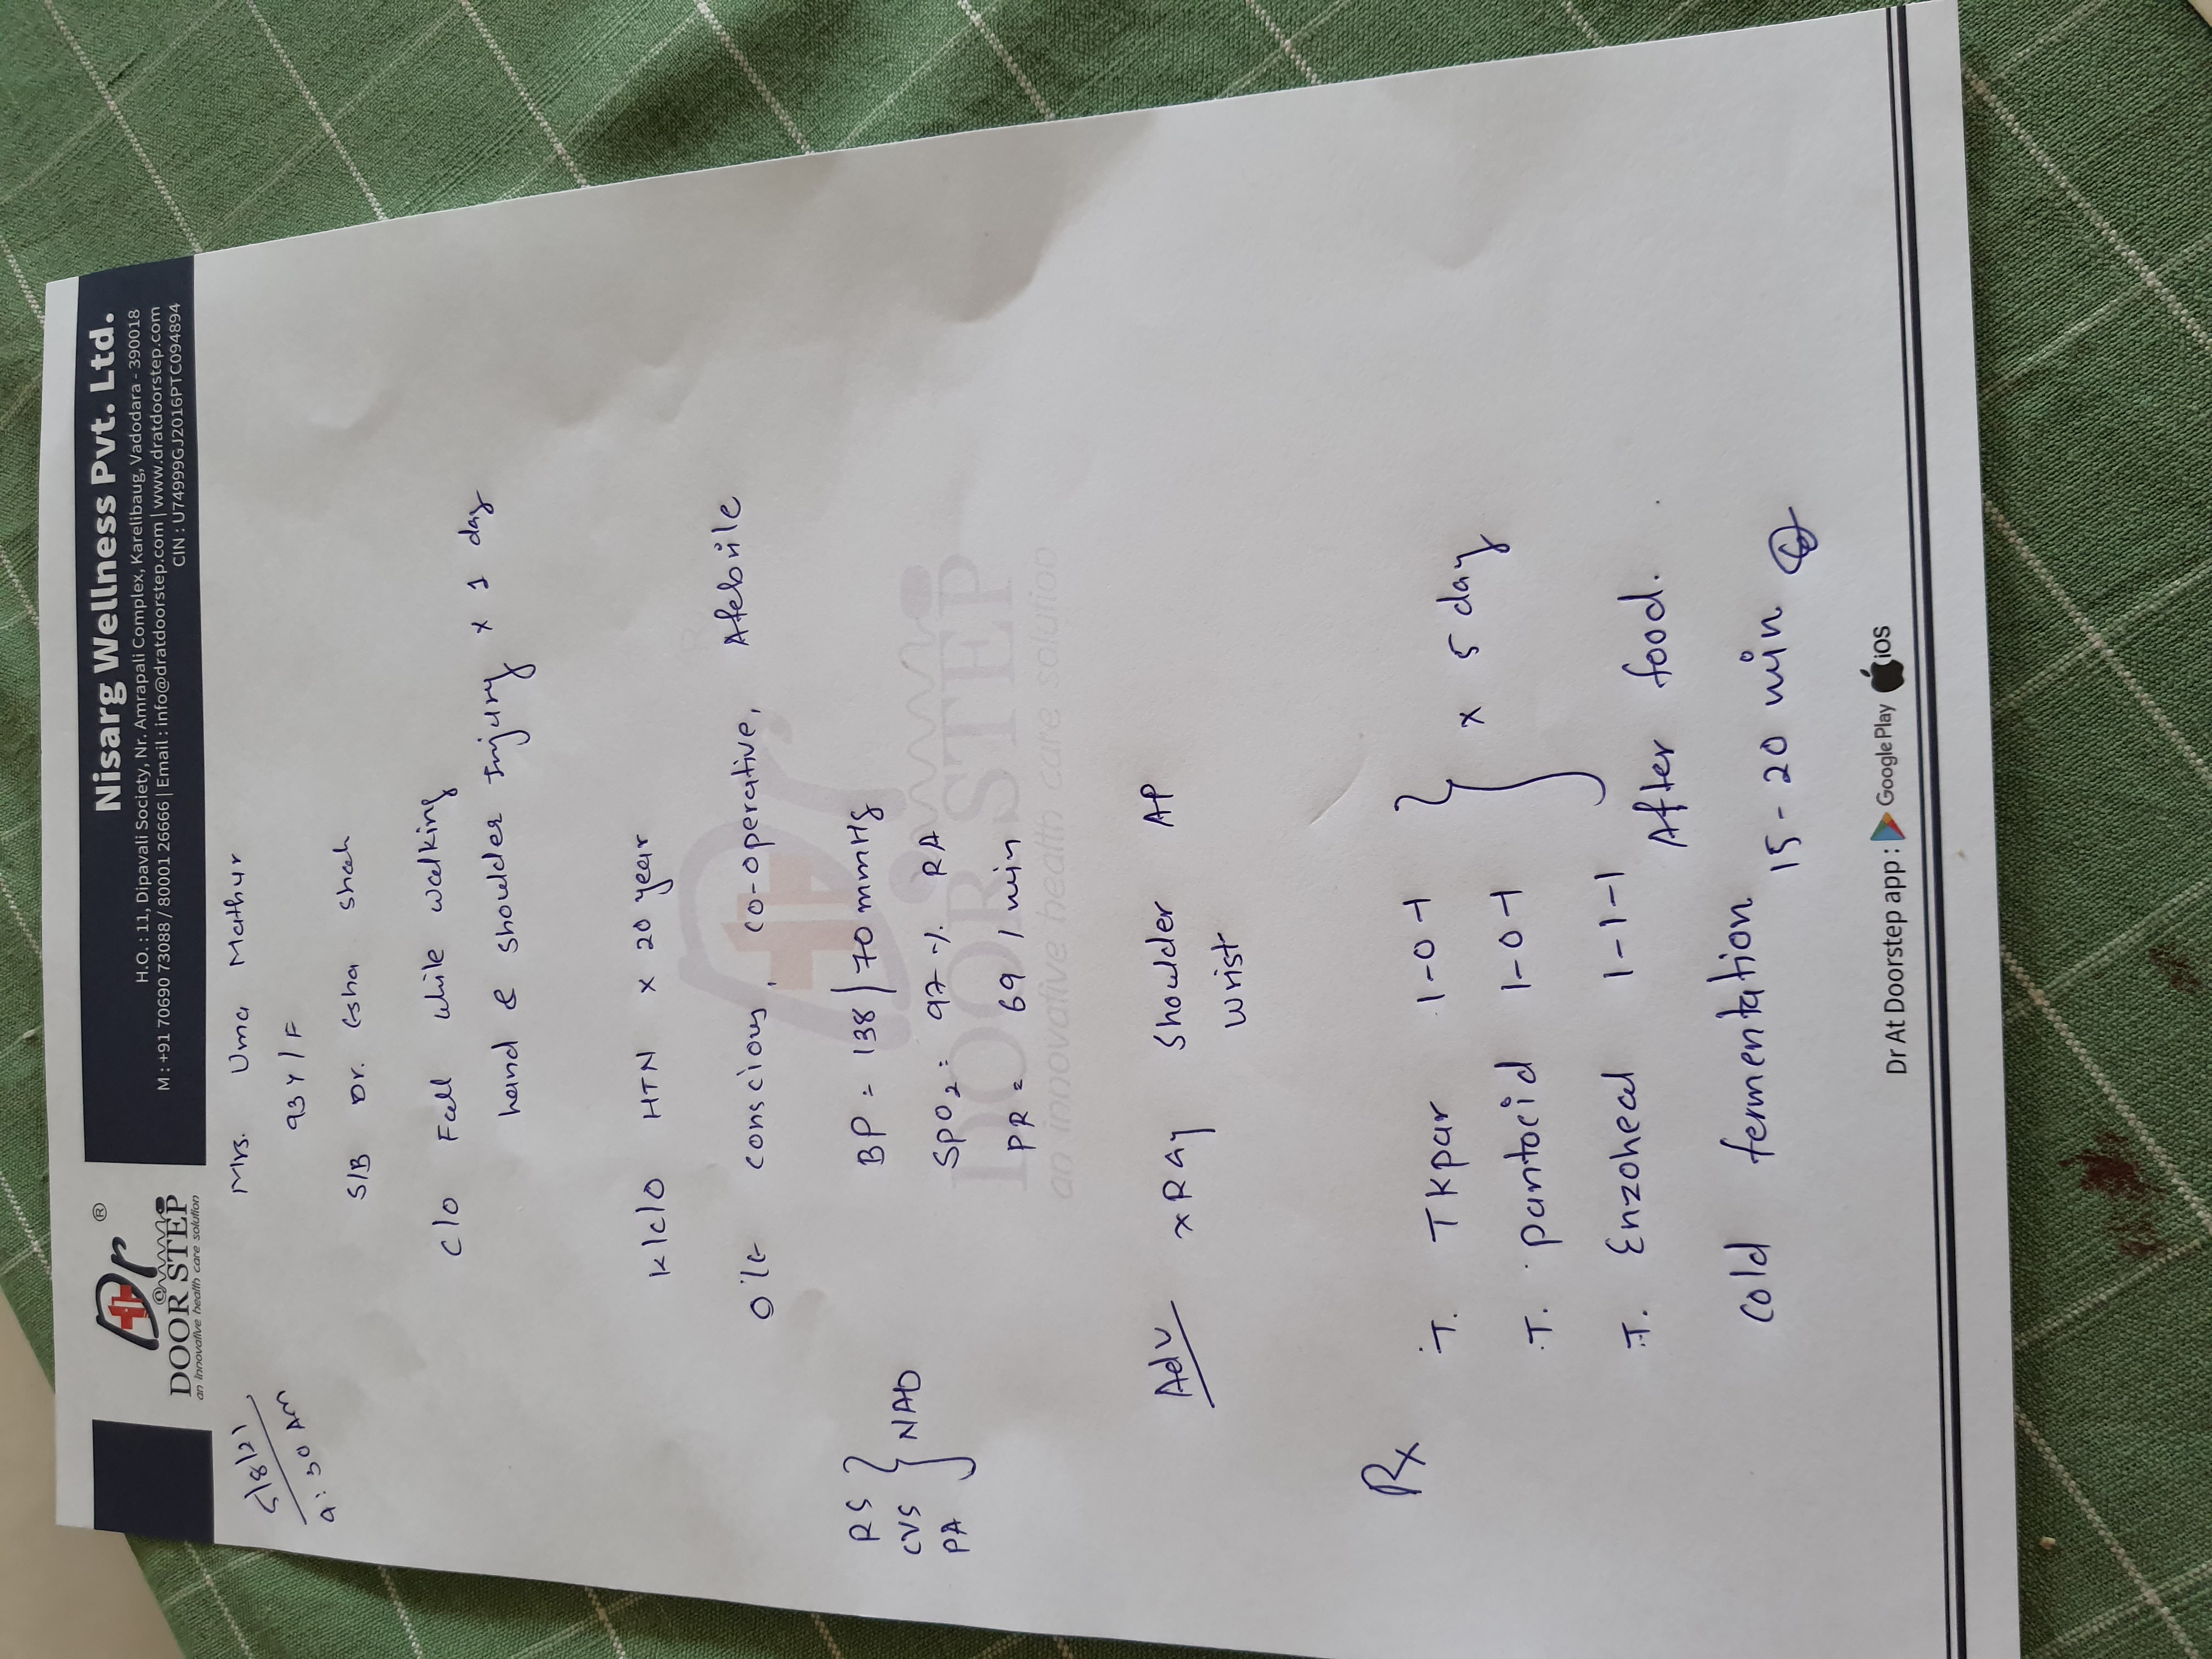 Dr ®
@
DOOR STEP
an Innovative health care solution
Nisarg Wellness Pvt. Ltd.
H.O. : 11, Dipavali Society, Nr. Amrapali Complex, Karelibaug, Vadodara - 390018
M : +91 70690 73088 / 80001 26666 | Email : info@dratdoorstep.com | www.dratdoorstep.com
CIN : U74999GJ2016PTC094894
5/8/21
9:30 AM
Mrs. Uma Mathur
93 Y / F
S/B Dr. Esha Shah
C/O Fall while walking
hand & shoulder Injury x 1 day
K/C/O HTN x 20 year
O/E conscious, co-operative, Afebrile
RS
CVS } NAD
PA
BP = 138/70 mmHg
SPO2 : 97 % RA
PR = 69 / min
Dr
DOOR STEP
an innovative health care solution
Adv xRay Shoulder AP
wrist
Rx
T. TKpar 1-0-1
T. pantocid 1-0-1 } x 5 day
T. Enzoheal 1-1-1
After food.
cold fermentation
15-20 min
Dr At Doorstep app : Google Play iOS